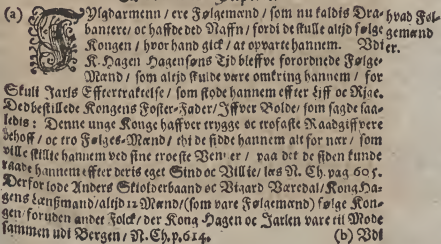 (a) FYlgdarmenn / ere Følgemænd / som nu kaldis Dra- hvad Føl-
bantere / oc haffde ded Naffn / fordi de skulle altjd følge gemænd
Kongen / hvor hand gick / at opvarte hannem. Vdi er.
K. Hagen Hagensøns Tjd bleffve forordnede Følge-
Mænd / som altjd skulde være omkring hannem / for
Skult Jarls Effterrakelse / som stode hannem effter Ljff oc Rjge.
Ded bestillede Kongens Foster-Fader / Jffver Bolde / som sagde saa-
ledis: Denne unge Konge haffver trygge oc trofaste Raadgiffvere
behoff / oc tro Følges-Mænd / thi de sidde hannem alt for nær / som
ville skillie hannem ved sine troeste Venner / paa det de siden kunde
raade hannem effter deris eget Sind oc Villie / læs N. Ch. pag 605.
Derfor lode Anders Skiolderbaand oc Vigard Væredal / Kong Ha-
gens Lensmænd / altjd 12 Mænd / (som vare Følgemænd) følge Kon-
gen / foruden andet Folck / der Kong Hagen oc Jarlen vare til Mode
sammen udi Bergen / N. Ch. p. 614. (b) Vdi